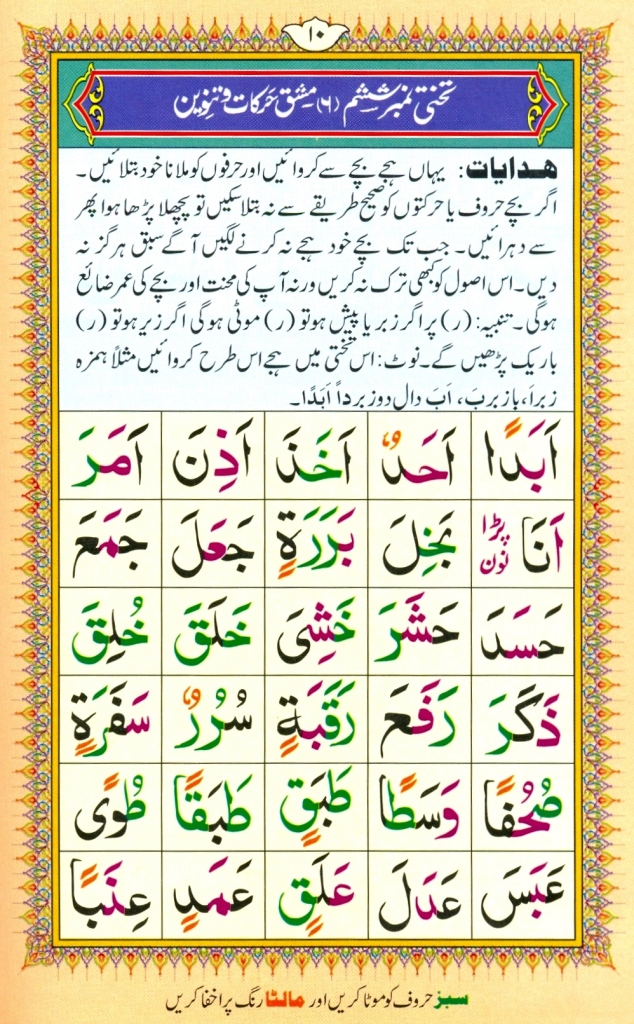 ۱۰
تختی نمبر ششم (۶) مشق حرکات و تنوین
ھدایات: یہاں ہجے بچے سے کروائیں اور حرفوں کو ملانا خود بتلائیں۔
اگر بچے حروف یا حرکتوں کو صحیح طریقے سے نہ بتلا سکیں تو پچھلا پڑھا ہوا پھر
سے دہرائیں۔ جب تک بچے خود ہجے نہ کرنے لگیں آگے سبق ہرگز نہ
دیں۔ اس اصول کو کبھی ترک نہ کریں ورنہ آپ کی محنت اور بچے کی عمر ضائع
ہوگی۔ تنبیہ: (ر) پر اگر زبر یا پیش ہو تو (ر) موٹی ہوگی اگر زیر ہو تو (ر)
باریک پڑھیں گے۔ نوٹ: اس تختی میں ہجے اس طرح کروائیں مثلاً ہمزہ
زبر اَ، با زبر بَ، اَبَ دال دو زبر داً اَبَدًا۔
اَبَدًا اَحَدٌ اَخَذَ اَذِنَ اَمَرَ
اَنَا پڑا نون بَخِلَ بَرَرَةٍ جَعَلَ جَمَعَ
حَسَدَ حَشَرَ خَشِىَ خَلَقَ خُلِقَ
ذَكَرَ رَفَعَ رَقَبَةٍ سُرُرٌ سَفَرَةٍ
صُحُفًا وَسَطًا طَبَقٍ طَبَقًا طُوًى
عَبَسَ عَدَلَ عَلَقٍ عَمَدٍ عِنَبًا
سبز حروف کو موٹا کریں اور مالٹا رنگ پر اخفا کریں